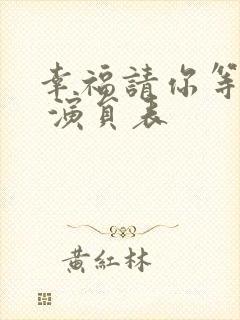 幸福請你等
演員表
黃紅林